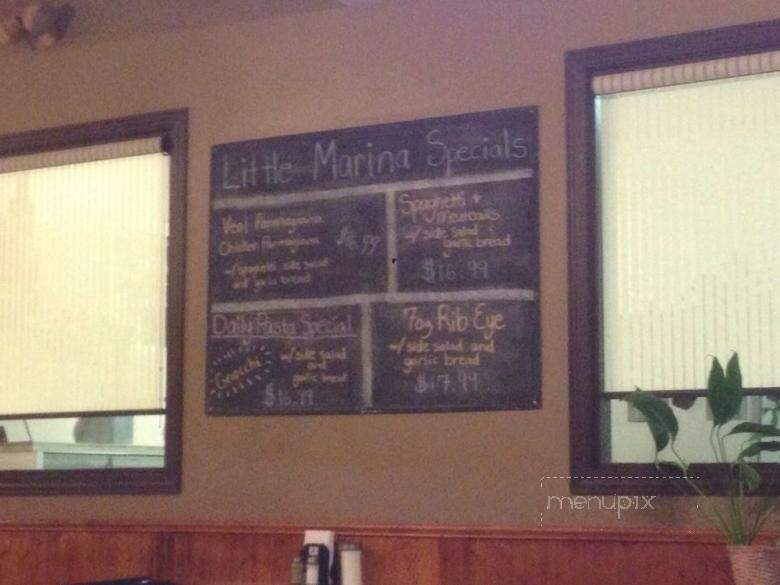 Little Marina Specials
Veal Parmagiana
Chicken Parmagiana
w/spaghetti side salad
and garlic bread
Spaghetti +
meatballs
w/side salad +
garlic bread
$16.99
Daily Pasta Special
Gnocchi
w/side salad
and
garlic bread
$16.99
7oz Rib Eye
w/side salad and
garlic bread
$17.99
menupix